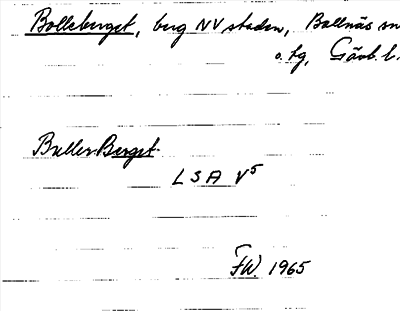 Bolleberget, berg NV staden, Bollnäs sn
o. tg, Gävl. l.
BullerBerget.
LSA V5
FW. 1965